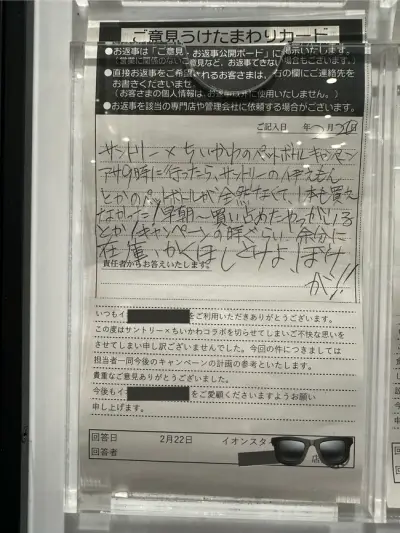 ご意見うけたまわりカード
●お返事は「ご意見・お返事公開ボード」に掲示いたします。
(営業に関係のないご意見など、お返事できない場合もございます。)
●直接お返事をご希望されるお客さまは、右の欄にご連絡先を
お書きくださいませ。
(お客さまの個人情報は、お返事以外に使用いたしません。)
●お返事を該当の専門店や管理会社に依頼する場合がございます。
ご記入日 年 2月21日
サントリー×ちいかわのペットボトルキャンペーン
朝9時に行ったら、サントリーの伊えもん
とかのペットボトルが全然なくて、1本も買え
なかった!早朝〜買い占めたやつがいる
とか!キャンペーンの時ぐらい、余分に
在庫かくほしとけよ、ぼけ
かす!!
責任者からお答えいたします。
いつもイ をご利用いただきありがとうございます。
この度はサントリー×ちいかわコラボを切らせてしまいご不快な思いを
させてしまい申し訳ございませんでした。今回の件につきましては
担当者一同今後のキャンペーンの計画の参考といたします。
貴重なご意見ありがとうございました。
今後もイ をご愛顧くださいますようお願い
申し上げます。
回答日 2月22日 イオンスタ
回答者 店